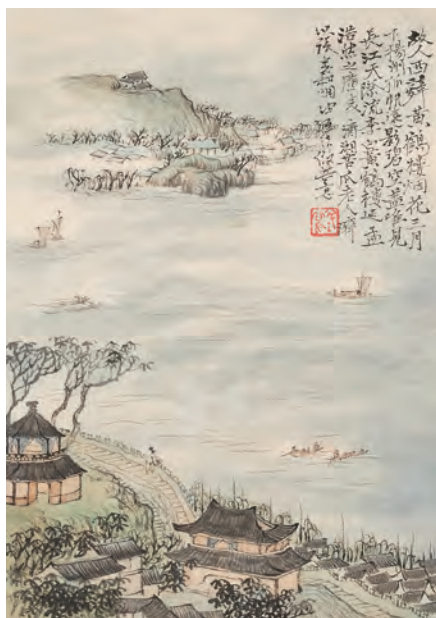 故人西辭黃鶴樓烟花三月
下揚州孤帆遠影碧空盡唯見
長江天際流李白黃鶴樓送孟
浩然之廣陵清湘苦瓜老人濟